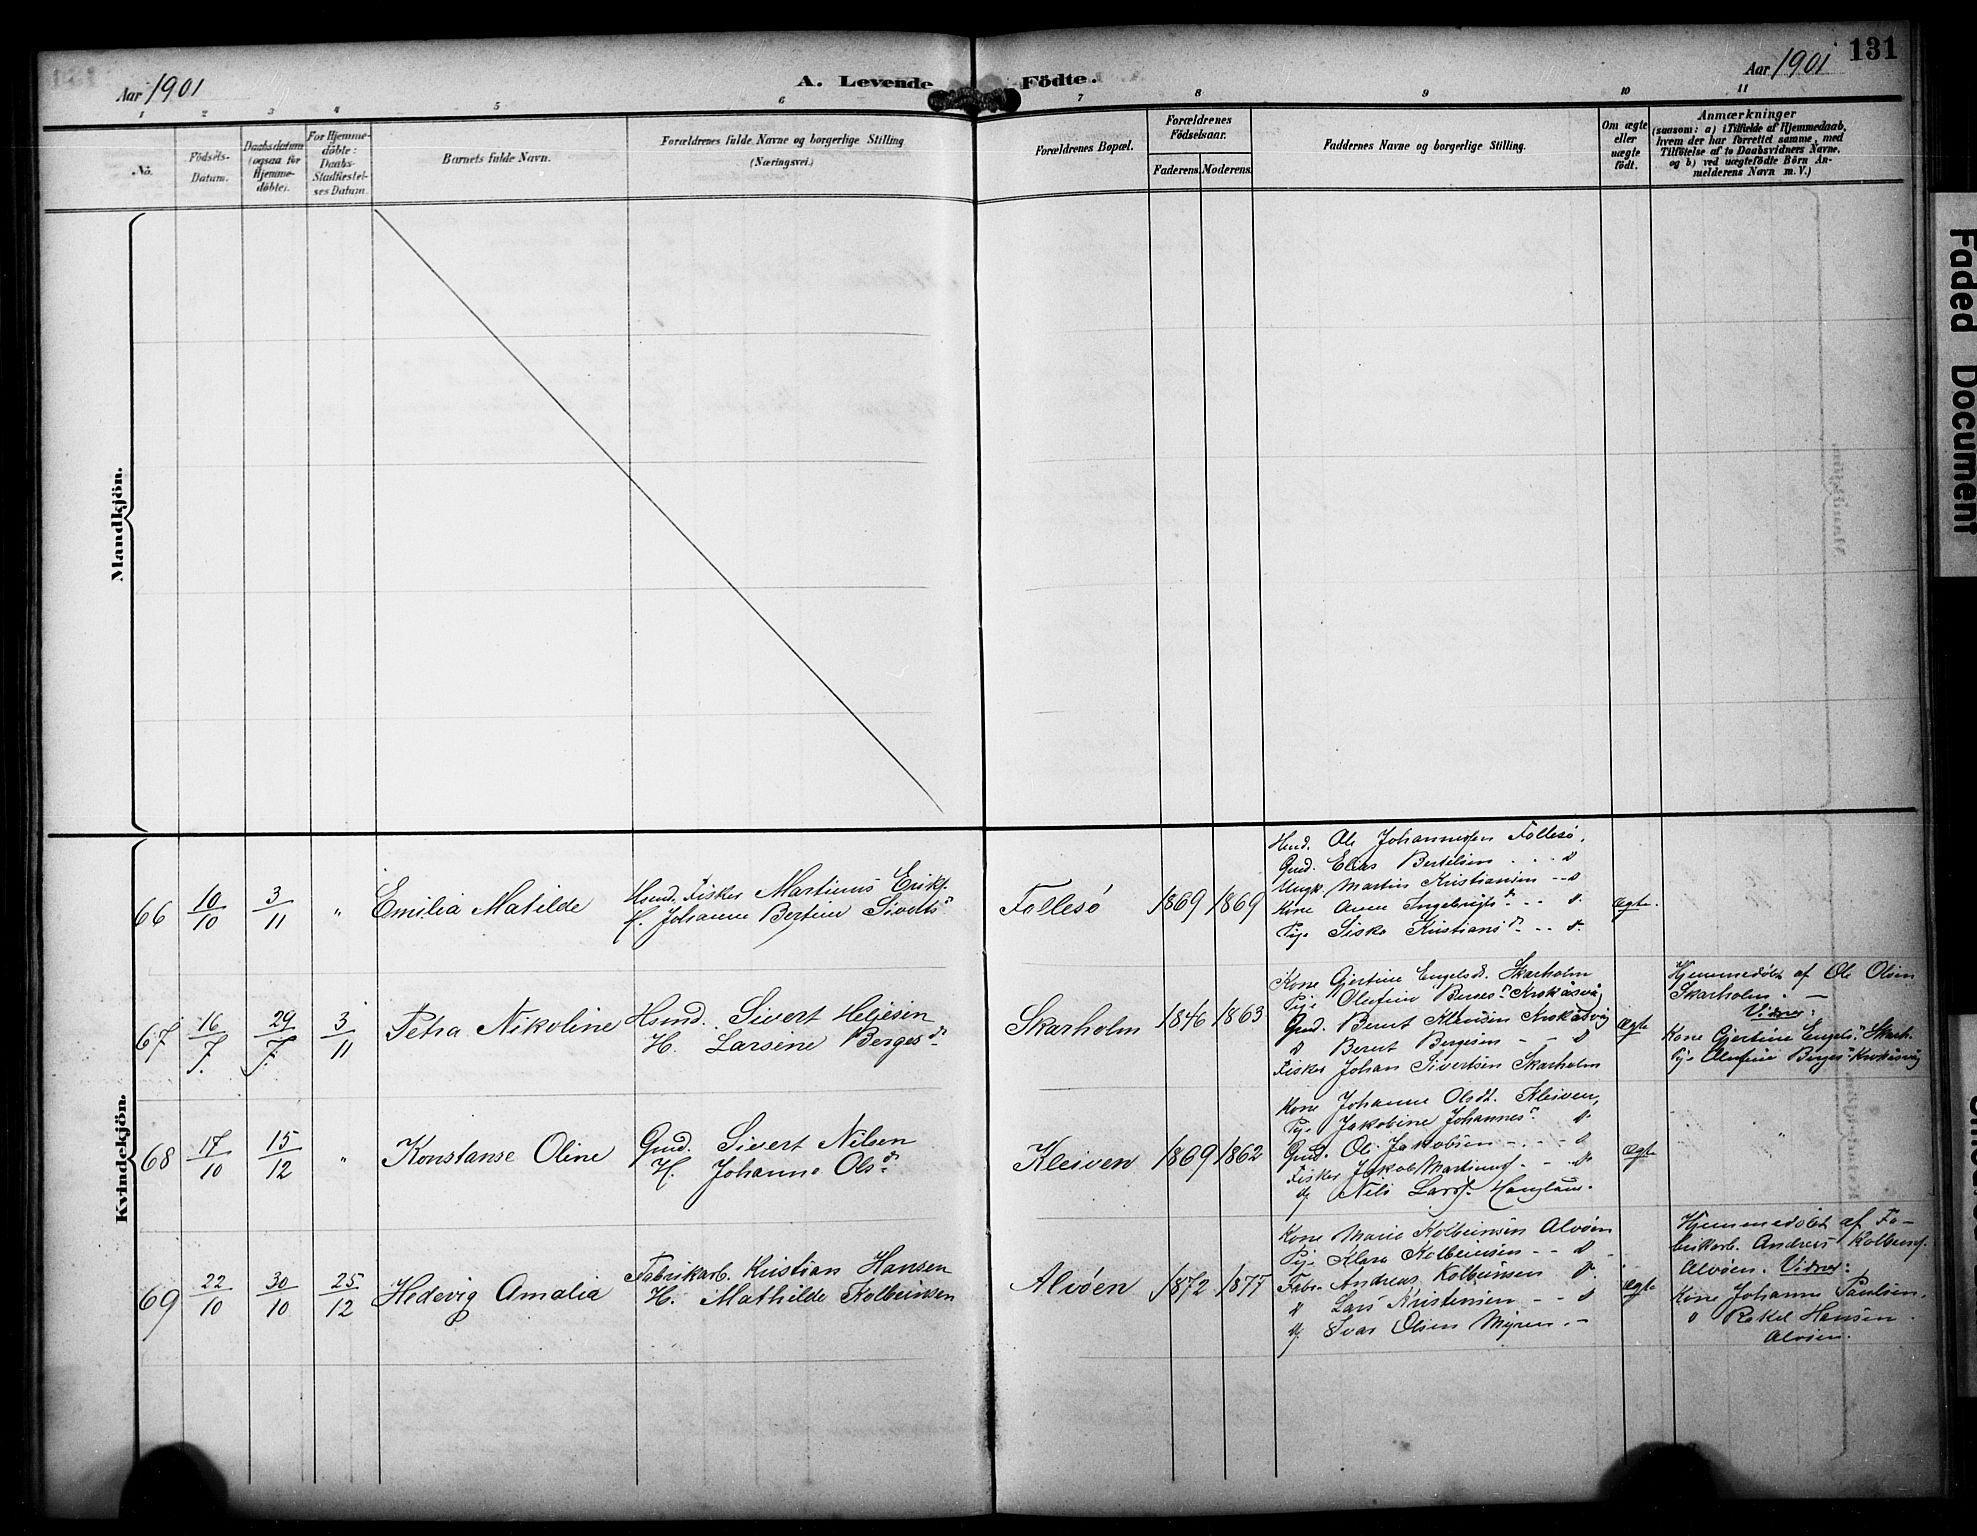 131
Aar 1901
A. Levende Födte.
Aar 1901
1 2 3 4 5 6 7 8 9 10 11
No.
Födsels-
Datum.
Daabsdatum
(ogsaa for
Hjemme-
döbte).
For Hjemme-
döbte:
Daabs-
Stadfæstel-
ses Datum.
Barnets fulde Navn.
Forældrenes fulde Navne og borgerlige Stilling
(Næringsvei.)
Forældrenes Bopæl.
Forældrenes
Födselsaar.
Faderens.
Moderens.
Faddernes Navne og borgerlige Stilling.
Om ægte
eller
uægte
födt.
Anmærkninger
(saasom: a) i Tilfælde af Hjemmedaab,
hvem der har forrettet samme, med
Tilföielse af to Daabsvidners Navne,
og b) ved uægtefödte Börn An-
melderens Navn m. V.)
Mandkjön.
Kvindekjön.
66
10/10
3/11
"
Emilia Matilde
Hsmd. Fisker Martinus Eriks.
H. Johanne Bertine Siverts d.
Follesö
1869
1869
Hmd. Ole Johannessen Follesö,
Gmd. Elias Bertelsen - - - d
Ungk. Martin Kristiansen - - d
Kone Anne Ingebrigts d. - - d.
Pige Siska Kristians d. - - d.
Ægte.
67
16/7.
29/7.
3/11
Petra Nikoline
Hsmd. Sivert Heljesen
H. Larsine Berges d.
Skarholm
1846
1863
Kone Gjertine Engelsd. Skarholm
Pige Olufine Berges d. Krokåsvåg
Gmd. Bernt Klausen Krokåsvåg
d Bernt Bergesen - - d
Fisker Johan Sivertsen Skarholm
Ægte
Hjemmedöbt af Ole Olsen
Skarholm. -
Vidner:
Kone Gjertine Engels d. Skarh.
Pige Olufine Berges d. Krokåsvåg
68
17/10
15/12
"
Konstanse Oline
Gmd. Sivert Nilsen
H. Johanne Ols d.
Kleiven
1869
1862
Kone Johanne Olsdt. Kleiven,
Pige Jakobine Johannes d. d.
Gmd. Ole Jakobsen - - - d
Fisker Jakob Martinus. - - d.
d Nils Lars.
Ægte
"
69
22/10
30/10
25/12
Hedevig Amalia
Fabrikarb. Kristian Hansen
H. Mathilde Kolbeinsen
Alvöen
1872
1877
Kone Marie Kolbeinsen Alvöen
Pige Klara Kolbeinsen - - d -
Fabr. Andreas Kolbeinsen d.
d Lars Kristensen - - d
d Ivar Olsen Myren. -
Ægte
Hjemmedöbt af Fa-
brikarb. Andreas Kolbeins.
Alvöen. Vidner:
Kone Johanne Paulsen.
d Rakel Hansen
Alvöen.
Faded Document